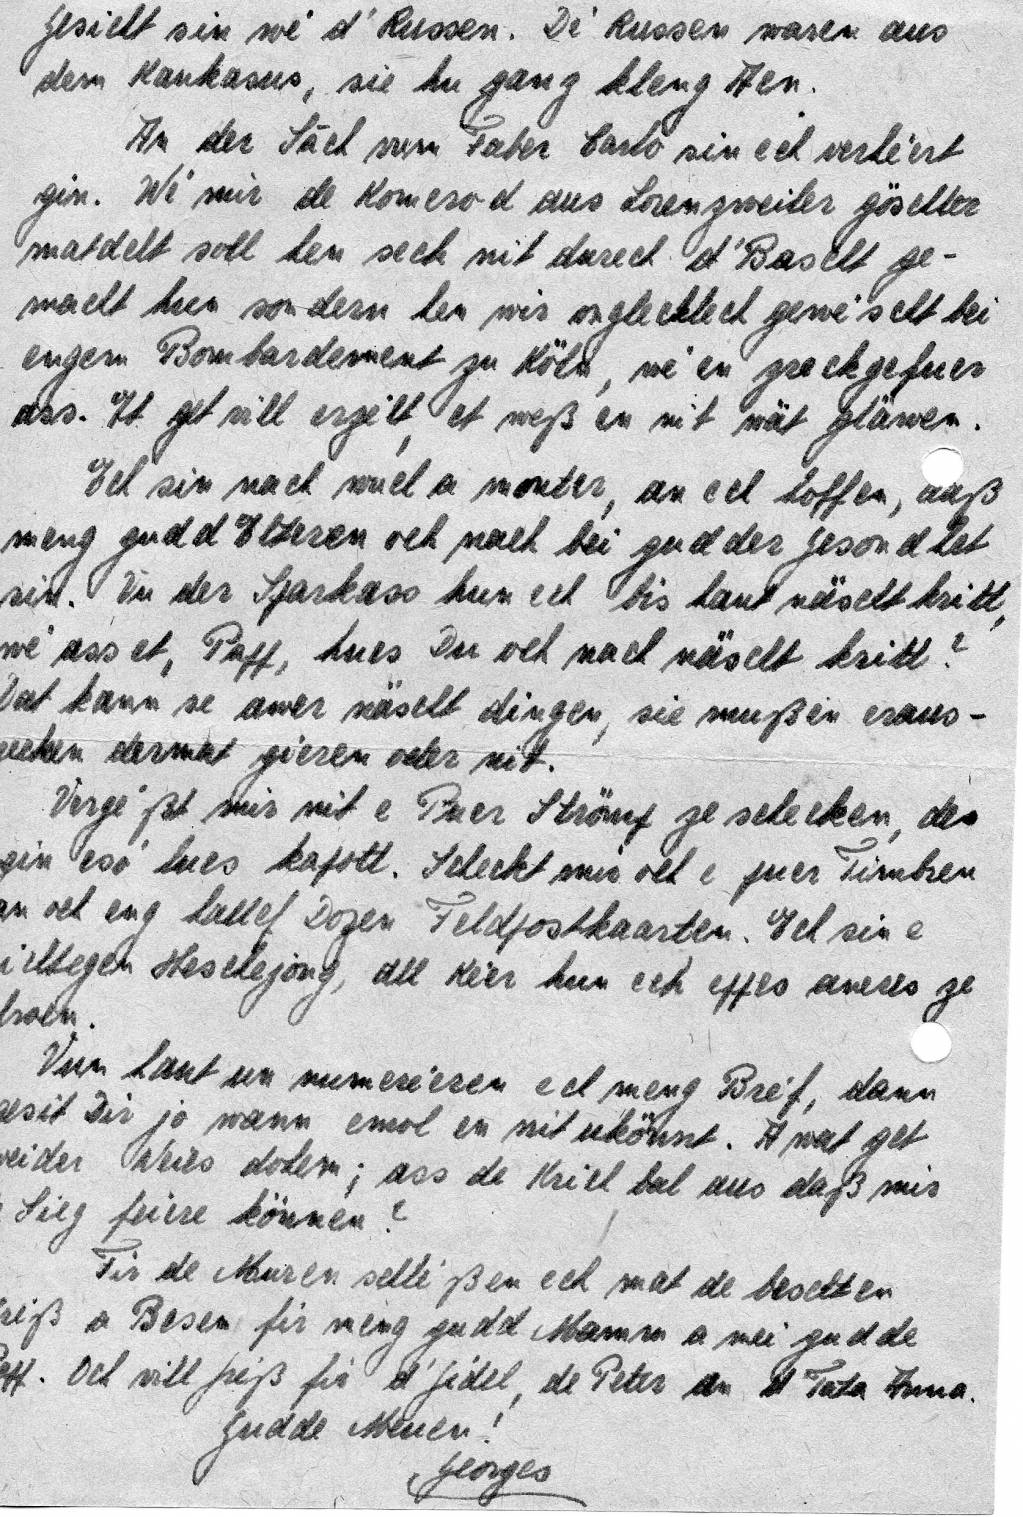 Gesicht sin wé d'Russen. Dé Russen waren aus
dem Kaukasus, sie hu ganz kleng Aen.
An der Sâch vum Faber Carlo sin ech verhéert
gin. Wé mir de Komerod aus Lorenzweiler
soll hen sech nit durech d'Bascht ge-
macht hun sondern hen wir onglecklech gewéscht bei
engem Bombardement zu Köln, wé en zreckgefuer
ass. Et get vill erzélt, et weß en nit wät gläwen.
Ech sin nach wuel a monter, an ech hoffen, daß
meng gudd Elteren och nach bei gudder Gesondhet
sin. Vu der Sparkass hun ech bis haut näscht kritt,
wé ass et, Papp, hues Du och nach näscht kritt?
Dat kann se awer näscht dingen, sie mußen eraus-
recken dermat gieren oder nit.
Vergéßt mir nit e Puer Strömp ze schecken, des
gin esó lues kapott. Scheckt mir och e puer Timbren
an och eng hallef Dozen Feldpostkaarten. Ech sin e
richtegen Heschejong, all Kéer hun ech eppes aneres ze
froen.
Vun haut un numeréeren ech meng Bréf, dann
gesit Dir jo wann emol en nit ukönnt. A wat get
weider Neies dohem; ass de Krich bal aus daß mir
de Sieg feiere können?
Fir de Muren schléßen ech mat de beschten
Greiß a Besen fir meng gudd Mamm a mei gudde
Papp. Och vill Greiß fir d'Jidel, de Peter an d'Tata Anna.
Gudde Muen!
Georges